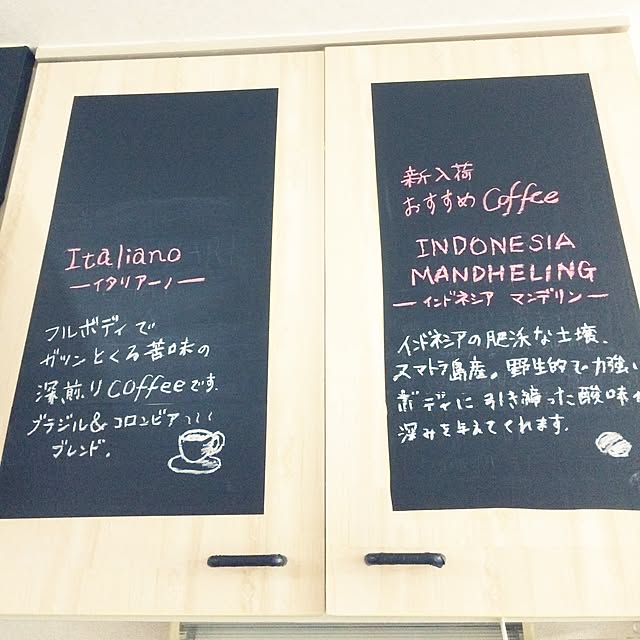 Italiano
ーイタリアーノー
フルボディで
ガツンとくる苦味の
深煎りcoffeeです。
ブラジル&コロンビア
ブレンド。
新入荷
おすすめ Coffee
INDONESIA
MANDHELING
ーインドネシア マンデリンー
インドネシアの肥沃な土壌、
スマトラ島産。野生的で力強い
ボディに引き締った酸味が
深みを与えてくれます。